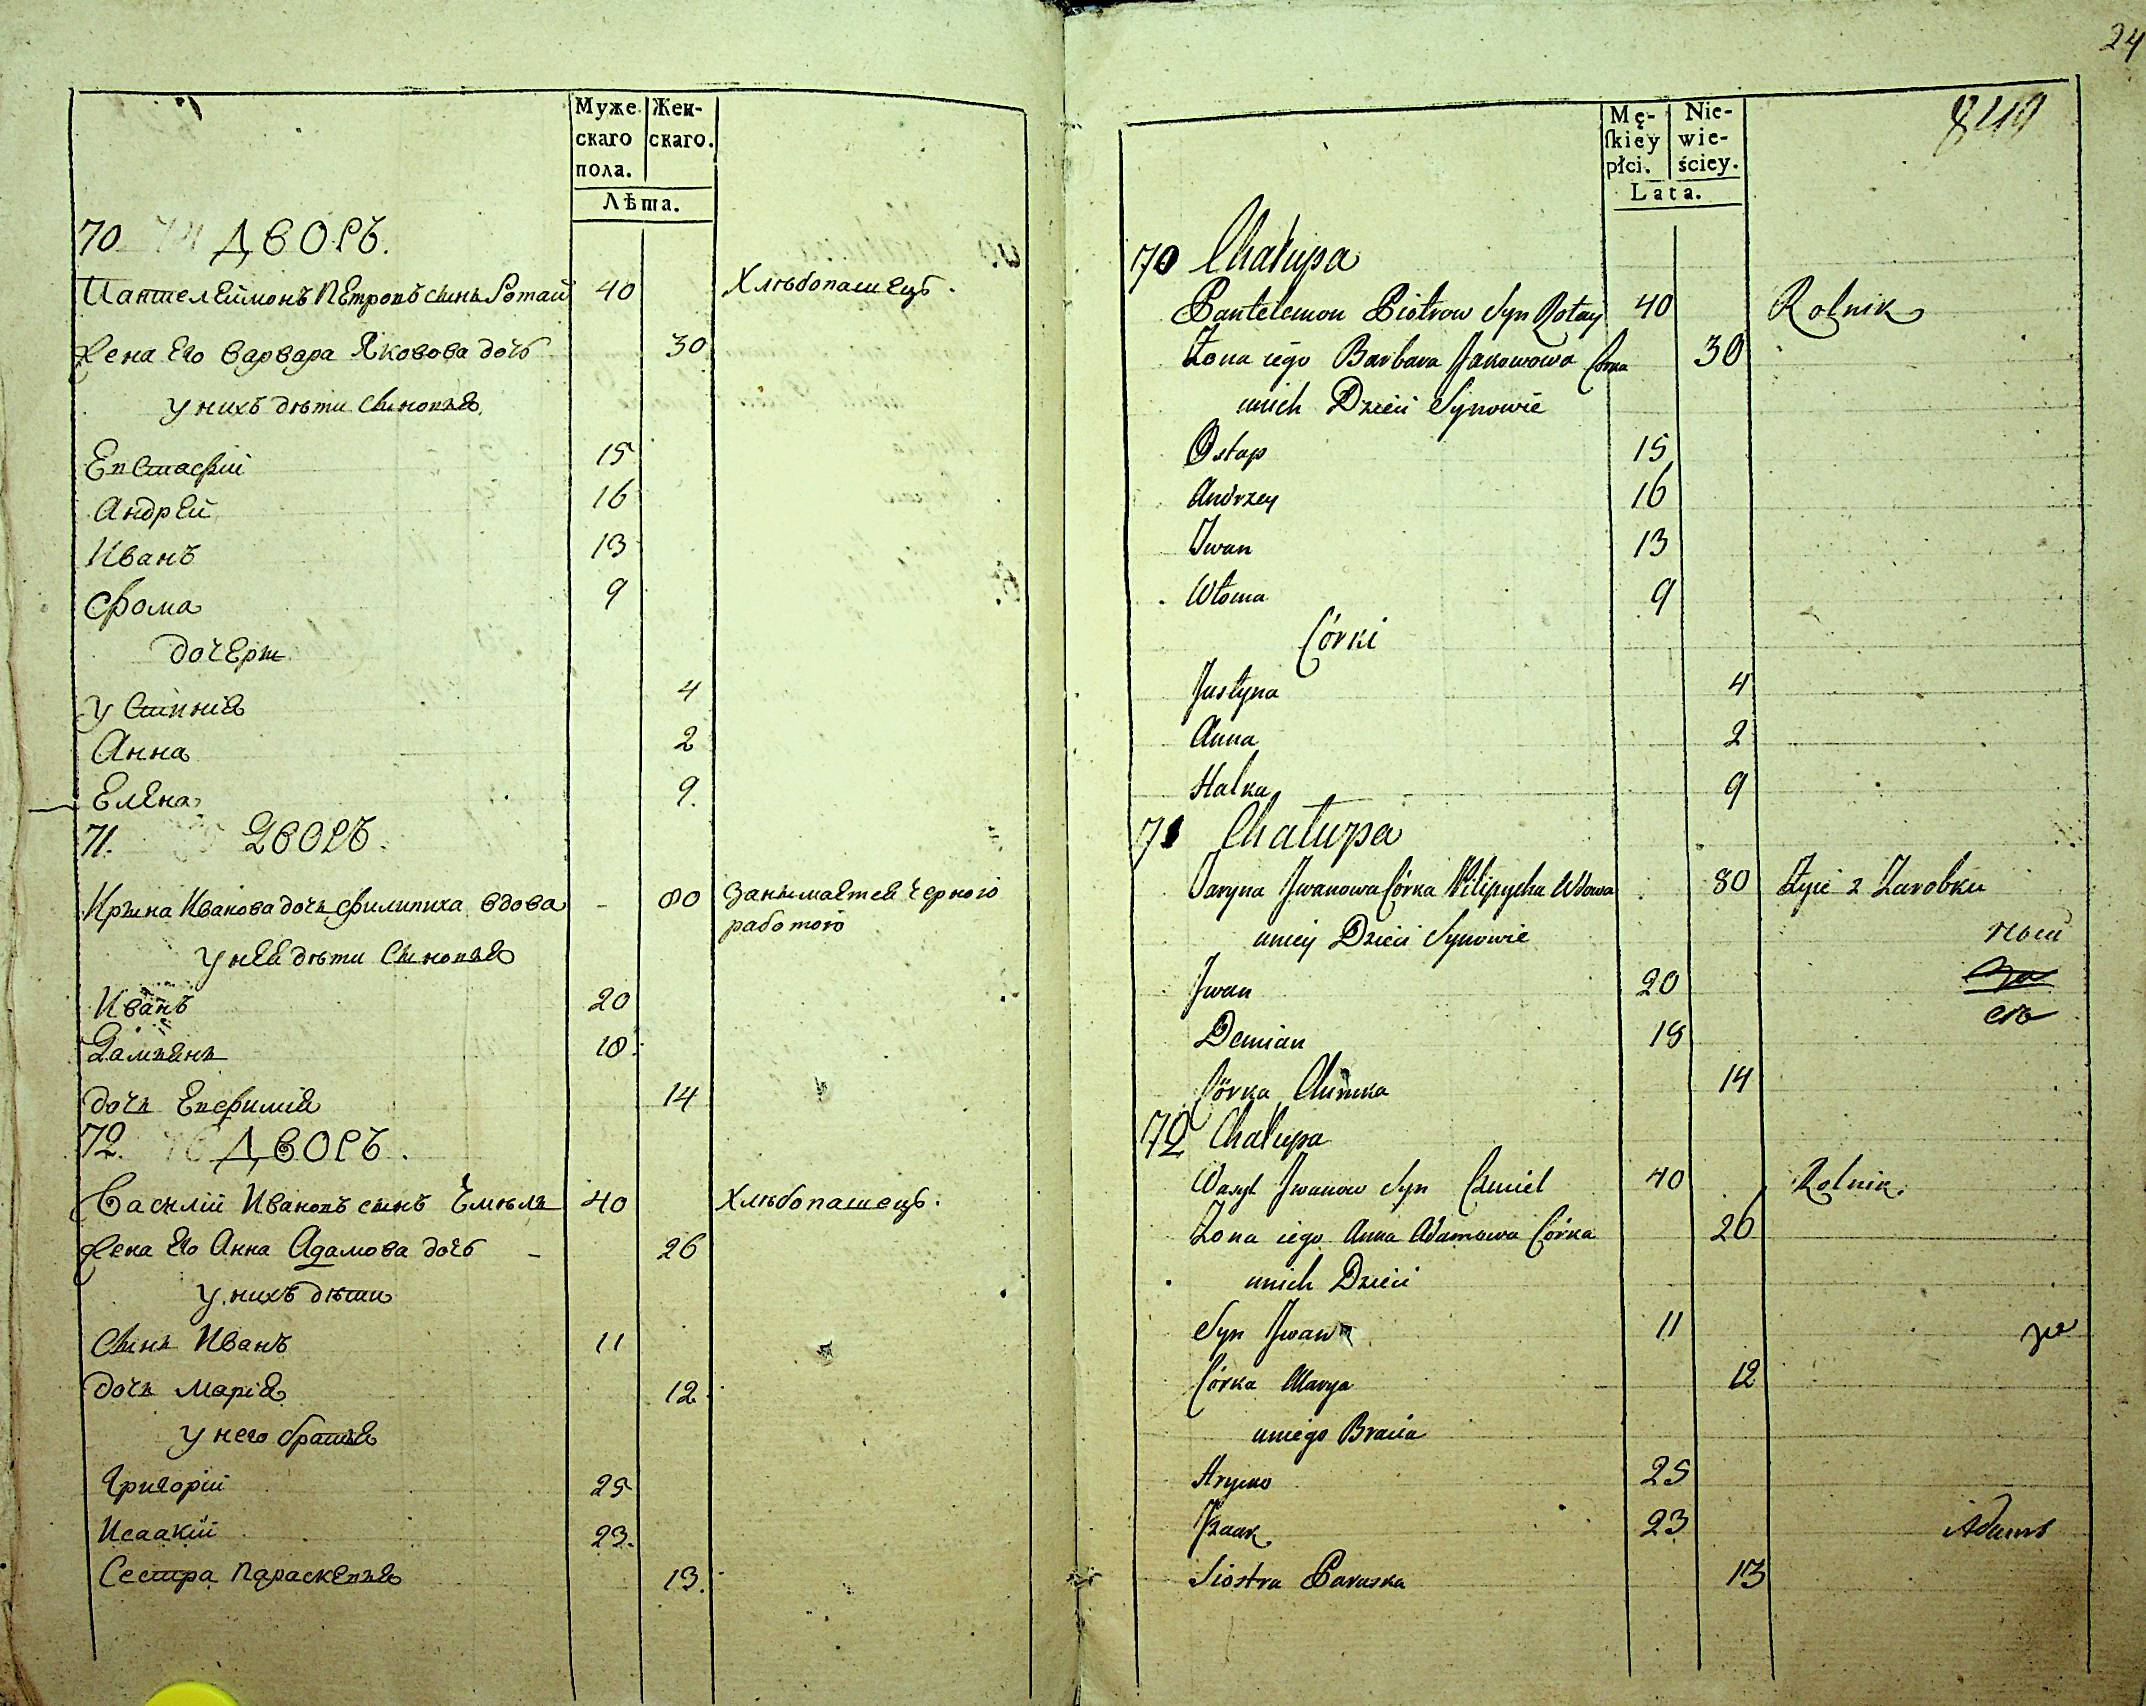 Муже Жен-
скаго скаго.
пола.
Лѣта.
70 74 Дворъ.
Пантелеймонъ Петровъ сынъ Ротай 40 Хлѣбопашецъ.
Жена Его Варвара Яковова дочь 30
у нихъ дѣти сыновья
Евстафій 15
Андрей 16
Иванъ 13
Фома 9
дочери
Устинія 4
Анна 2
Елена 9.
71. Дворъ.
Ирина Иванова дочь Филипиха вдова - 80 Занимается черною
работою
у нея дѣти сыновья
Иванъ 20
Дамьянъ 18.
дочь Евфимія 14
72. 76 Дворъ.
Василій Ивановъ сынъ Хмѣль 40 Хлѣбопашецъ.
Жена Его Анна Адамова дочь - 26
у нихъ дѣти
Сынъ Иванъ 11
дочь Марія 12.
у него братья
Григорій 25
Исаакій 23.
Сестра Параскевья 13.
24
Mę- Nie-
ſkiey wie-
płci. ściey.
Lata.
849
70 Chałupa
Pantelemon Piotrow Syn Rotay 40 Rolnik
Żona iego Barbara Jakowowa Córka 30
unich Dzieci Synowie
Ostap 15
Andrzey 16
Iwan 13
Wtoma 9
Córki
Justyna 4
Anna 2
Halka 9
71 Chałupa
Jaryna Jwanowa Córka Filipycha Wdowa 80 Żyie z Zarobku
uniey Dzieci Synowie
Jwan 20
Demian 18
Córka Chimka 14
72 Chałupa
Wasyl Jwanow Syn Chmiel 40 Rolnik.
Żona iego Anna Adamowa Córka 26
unich Dzieci
Syn Jwan 11
Córka Marya 12
uniego Bracia
Hryćko 25
Izaak 23
Siostra Paraska 13